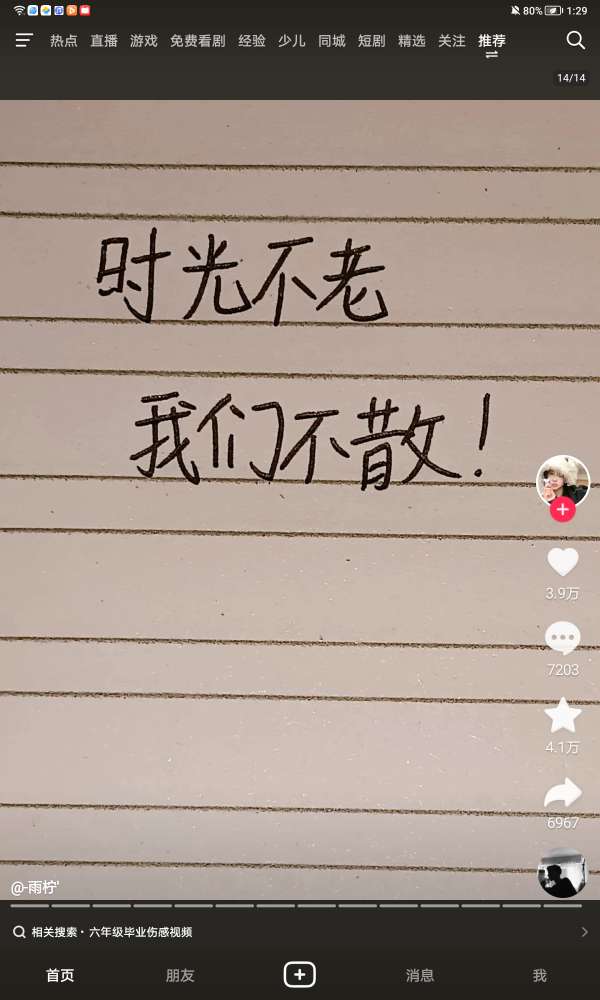 80% 1:29
热点 直播 游戏 免费看剧 经验 少儿 同城 短剧 精选 关注 推荐
14/14
时光不老
我们不散！
3.9万
7203
4.1万
6967
@-雨柠'
相关搜索·六年级毕业伤感视频
首页 朋友 消息 我